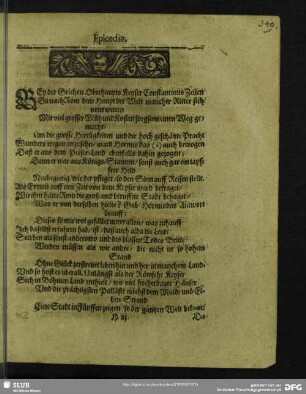 Epicedia.
BEy der Griechen Oberhaupts Keyser Constantinus Zeiten/
Da nach Rom dem Haupt der Welt mancher Ritter sich
vom weiten
Mit viel grosser Müh und Kosten sorgsam einen Weg ge-
macht/
Um die grosse Herrligkeiten und die hoch geschätzte Pracht
Wunders wegen anzusehen/ ward Hormisdas (1) auch bewogen
Daß er aus dem Perser-Land ebenfalls dahin gezogen;
Denn er war aus Königs-Stamme/ sonst auch gar ein tapf-
fer Held
Neubegierig/ wie der pfleget/ so den Sinn auff Reisen stellt.
Als Ermin auff eine Zeit von dem Kayser ward befraget/
Wie ihm hätte Rom die grosse und beruffne Stadt behaget/
Was er von derselben hielte? Gab Hormisdas Antwort
drauff:
Dieses so mir wol gefället unter allen/ was zuhauff
Ich daselbst erfahren hab/ ist/ daß auch alda die Leute
Sterben als sonst anderswo und des blasser Todes Beute/
Werden müssen als wie andre/ die nicht in so hohem
Stand
Ohne Glück zerstreuet leben hin und her in manchem Land.
Und so heist es überall. Umlängst als der Römsche Keyser
Sich in Böhmer-Land enthielt/ wo viel hocherbaute Häuser
Und die prächtigsten Palläste nächst dem Mold- und El-
ben-Strand
Eine Stadt in Fünffen zeigen/ so der gantzen Welt bekant/
Da-
SLUB
Wir führen Wissen.